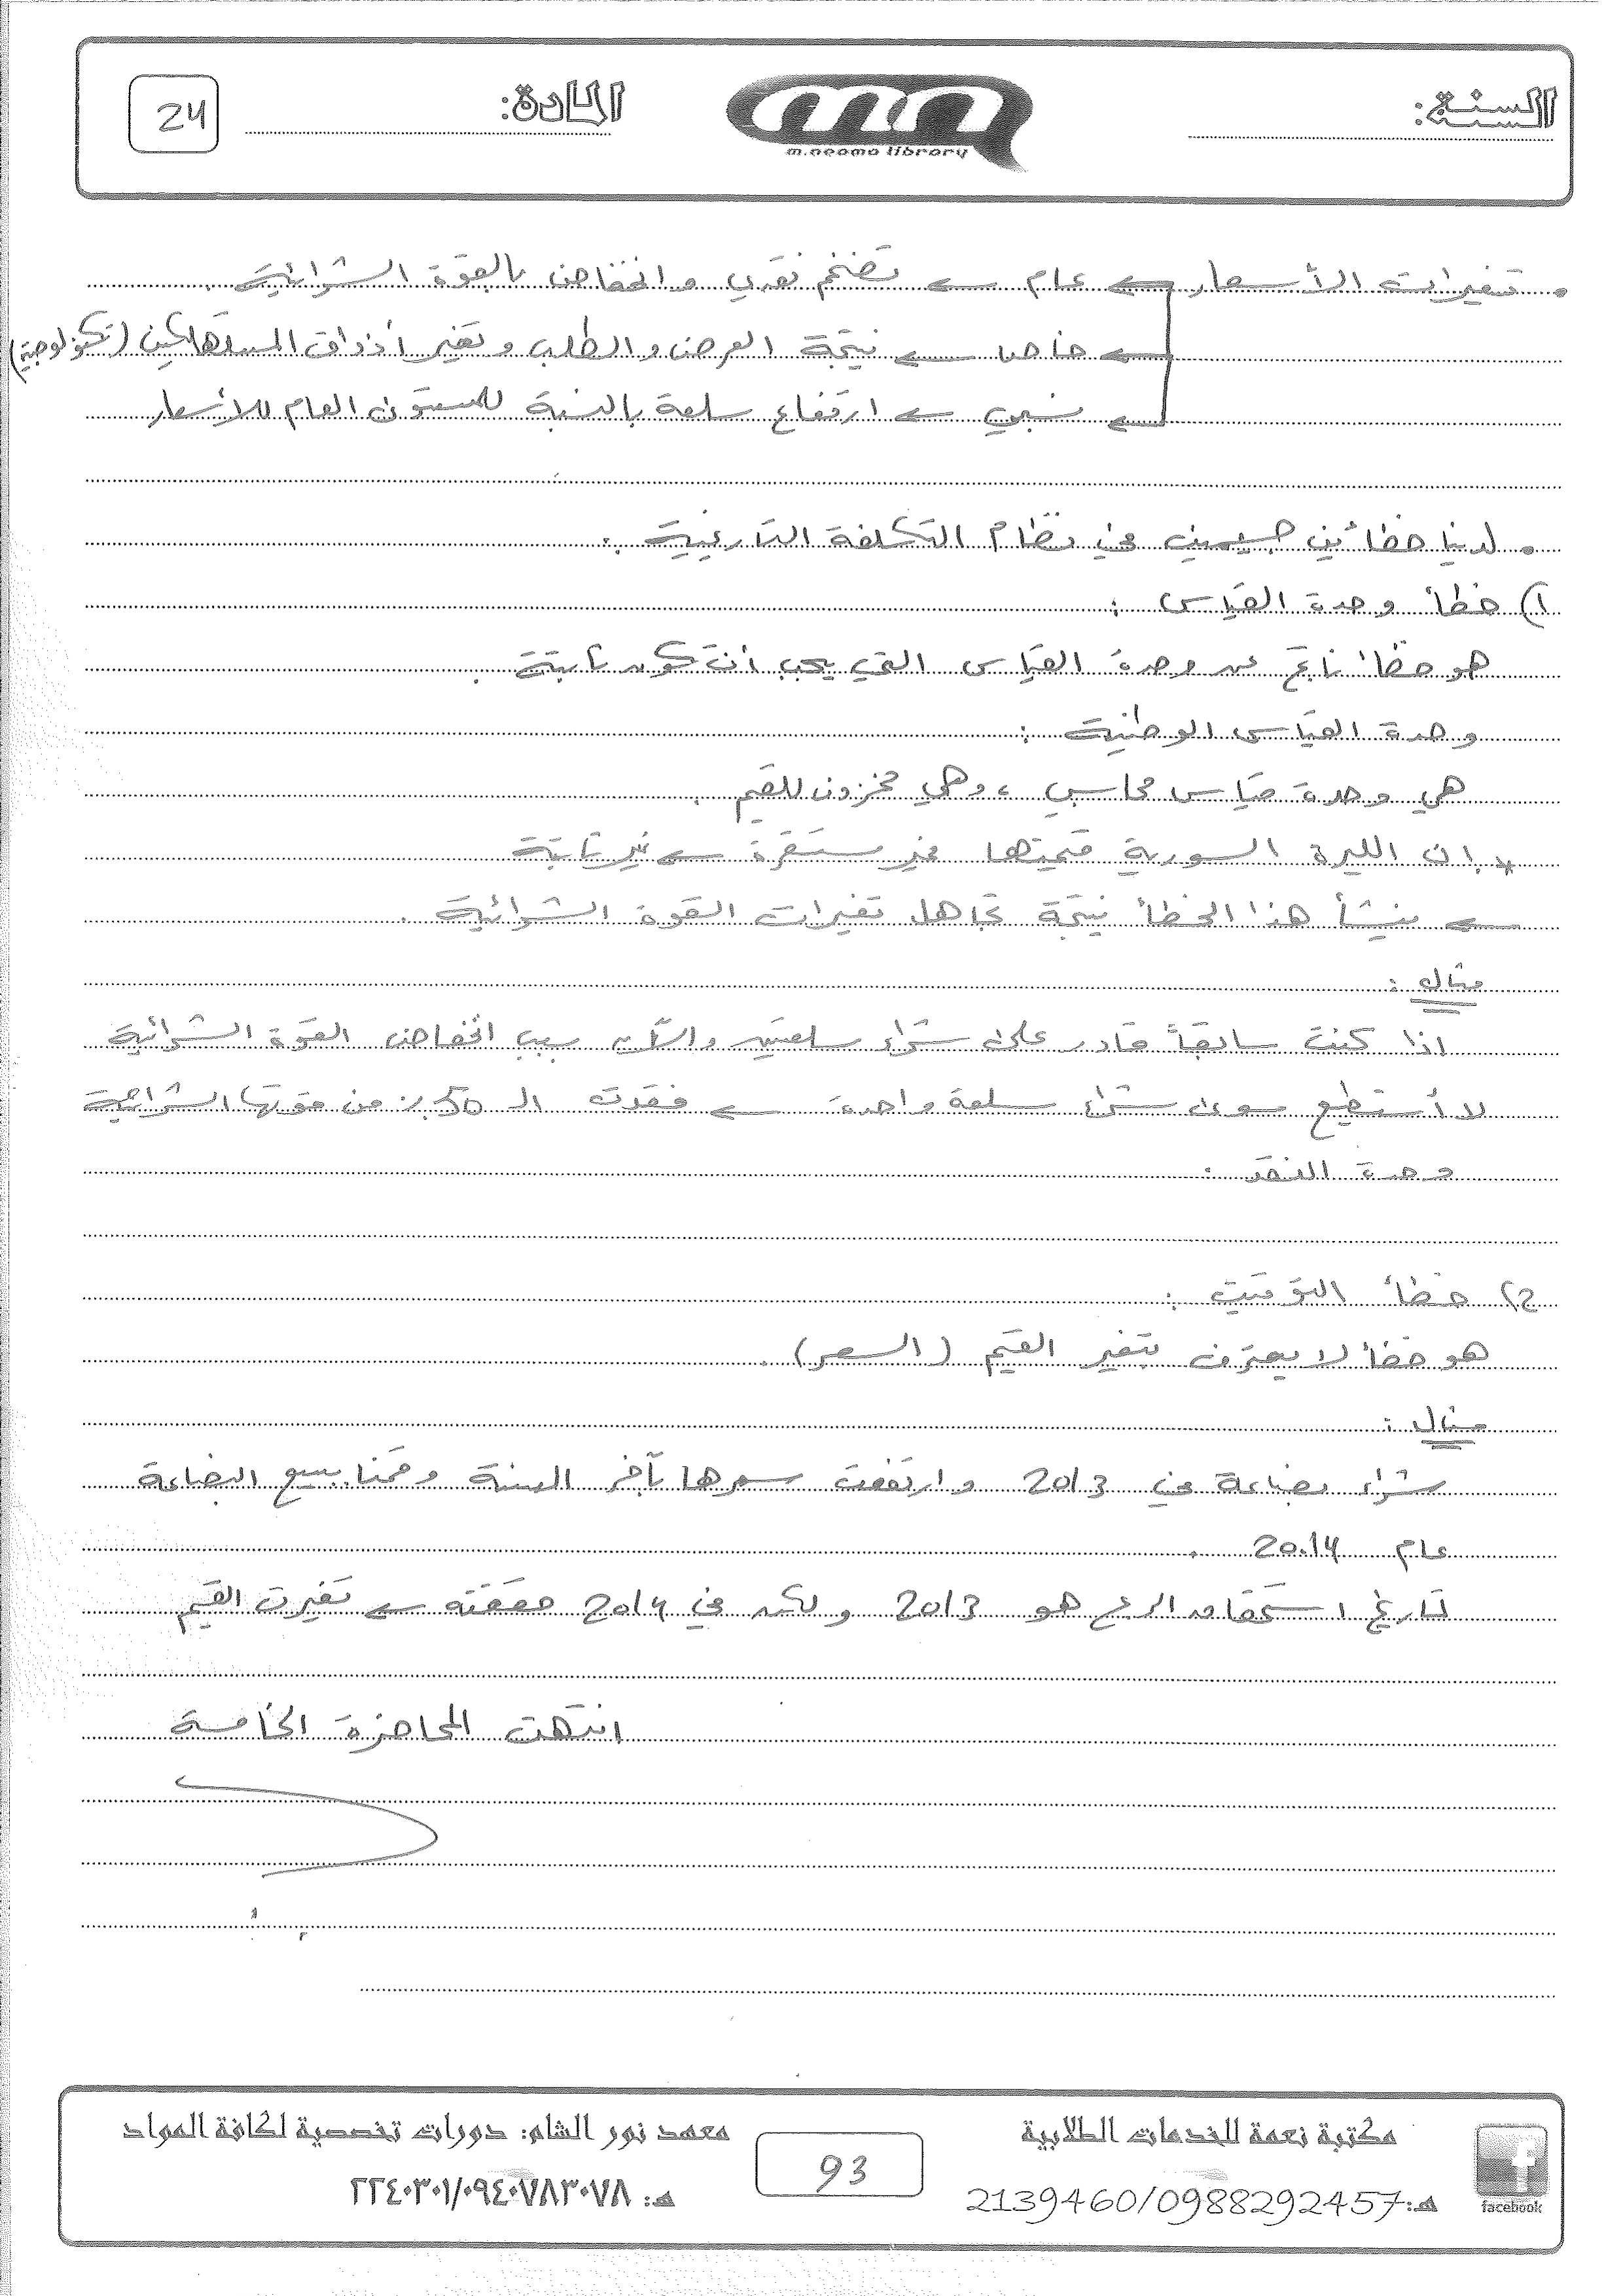 السنة:
المادة:
24
m.neama library
• تغيرات الأسعار ← عام ← تضخم نقدي وانخفاض بالقوة الشرائية.
← خاص ← نتيجة العرض والطلب وتغير أذواق المستهلكين (تكنولوجية)
← نسبي ← ارتفاع سلعة بالنسبة للمستوى العام للأسعار
• لدينا خطأين جسيمين في نظام التكلفة التاريخية:
1) خطأ وحدة القياس:
هو خطأ ناتج عن وحدة القياس التي يجب أن تكون ثابتة.
وحدة القياس الوطنية:
هي وحدة قياس محاسبي، وهي مخزون للقيم.
* إن الليرة السورية قيمتها غير مستقرة ← غير ثابتة
← ينشأ هذا الخطأ نتيجة تجاهل تغيرات القوة الشرائية.
مثال:
اذا كنت سابقاً قادر على شراء سلعتين والآن بسبب انخفاض القوة الشرائية
لا أستطيع سوى شراء سلعة واحدة ← فقدت الـ 50٪ من قوتها الشرائية
وحدة النقد.
2) خطأ التوقيت:
هو خطأ لا يعترف بتغير القيم (السعر).
مثال:
شراء بضاعة في 2013 وارتفعت سعرها بآخر السنة وقمنا ببيع البضاعة
عام 2014.
تاريخ استحقاق الربح هو 2013 ولكن في 2014 حققته ← تغيرت القيم
انتهت المحاضرة الخامسة
مكتبة نعمة للخدمات الطلابية
هـ:2139460/0988292457
facebook
93
معهد نور الشام: دورات تخصصية لكافة المواد
هـ: ٢٢٤٠٣٠١/٠٩٤٠٧٨٣٠٧٨